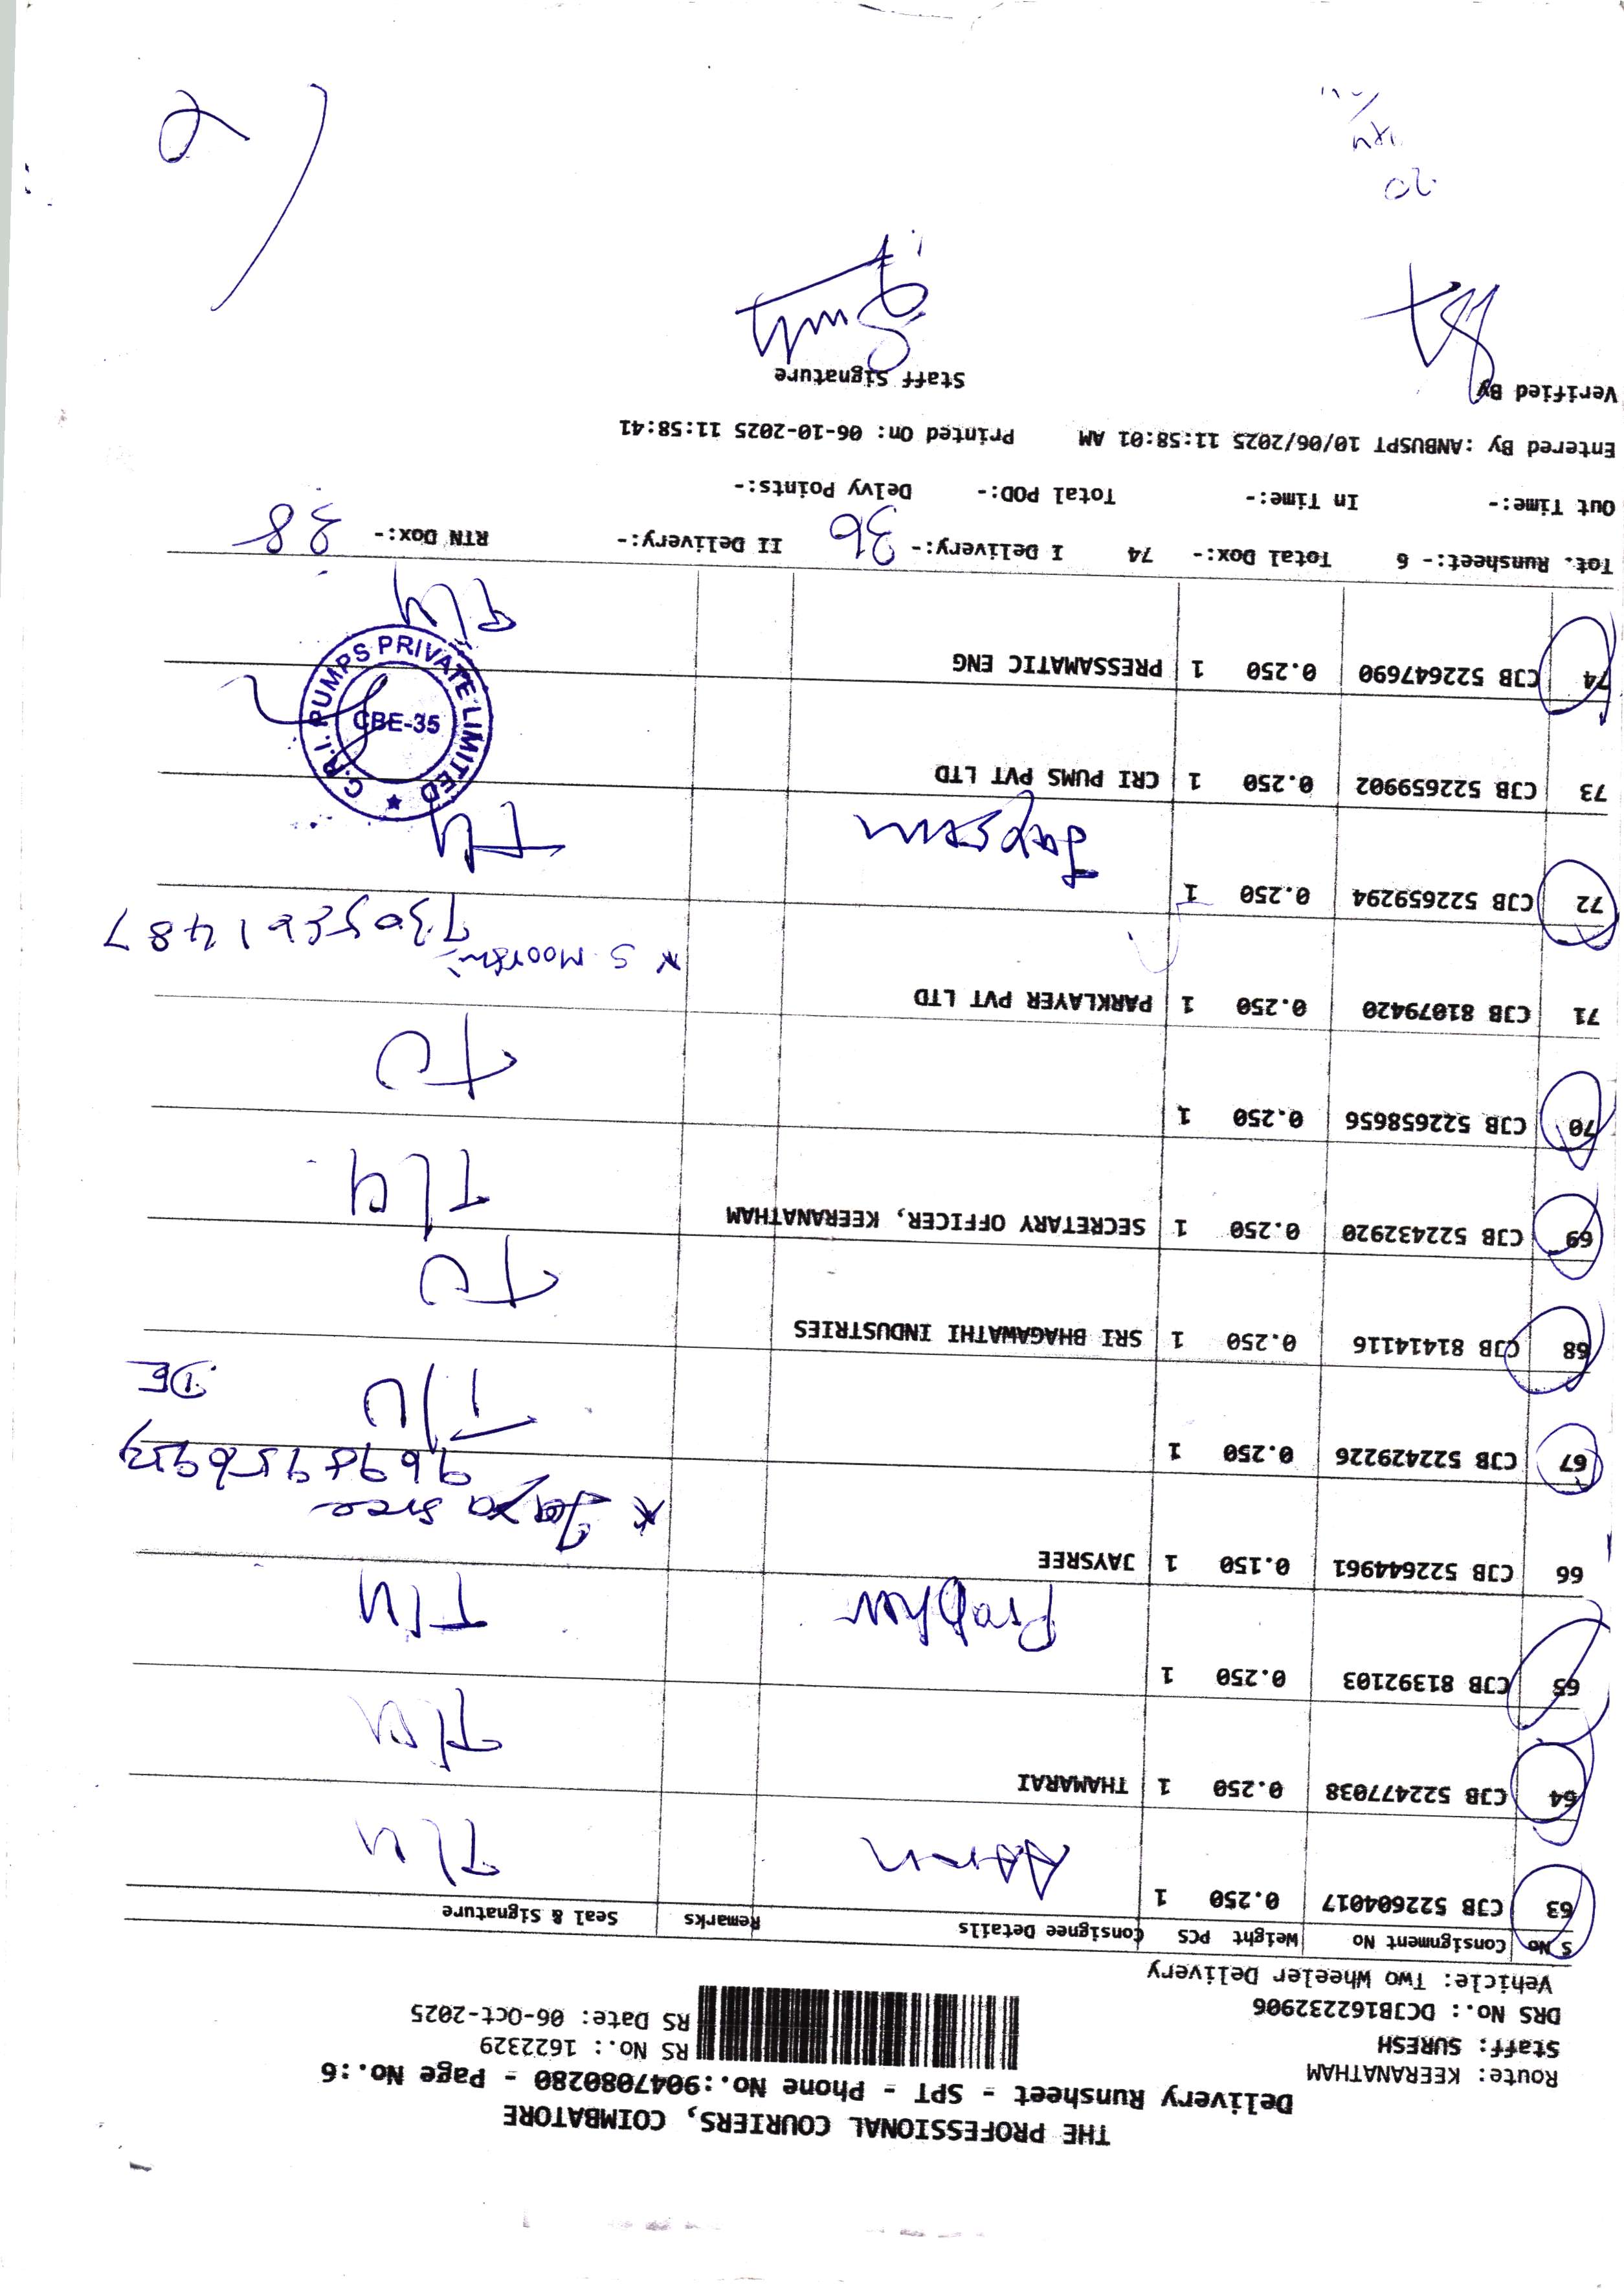 THE PROFESSIONAL COURIERS, COIMBATORE
Delivery Runsheet - SPT - Phone No.:9047080280 - Page No.:6
Route: KEERANATHAM
Staff: SURESH RS No.: 1622329
DRS No.: DCJB162232906 RS Date: 06-Oct-2025
Vehicle: Two Wheeler Delivery
S No Consignment No Weight PCS Consignee Details Remarks Seal & Signature
63 CJB 522604017 0.250 1
64 CJB 522477038 0.250 1 THAMARAI
65 CJB 81392103 0.250 1 Prabhu
66 CJB 522644961 0.150 1 JAYSREE
* Jaya sree
67 CJB 522429226 0.250 1
DE
68 CJB 81414116 0.250 1 SRI BHAGAWATHI INDUSTRIES
69 CJB 522432920 0.250 1 SECRETARY OFFICER, KEERANATHAM
70 CJB 522658656 0.250 1
71 CJB 81079420 0.250 1 PARKLAYER PVT LTD
* S. Moorthi
72 CJB 522659294 0.250 1
73 CJB 522659902 0.250 1 CRI PUMS PVT LTD
C.R.I. PUMPS PRIVATE LIMITED ★
CBE-35
74 CJB 522647690 0.250 1 PRESSAMATIC ENG
Tot. Runsheet:- 6 Total Dox:- 74 I Delivery:- 36 II Delivery:- RTN Dox:- 38
Out Time:- In Time:- Total POD:- Delvy Points:-
Entered By :ANBUSPT 10/06/2025 11:58:01 AM Printed On: 06-10-2025 11:58:41
Verified By Staff Signature